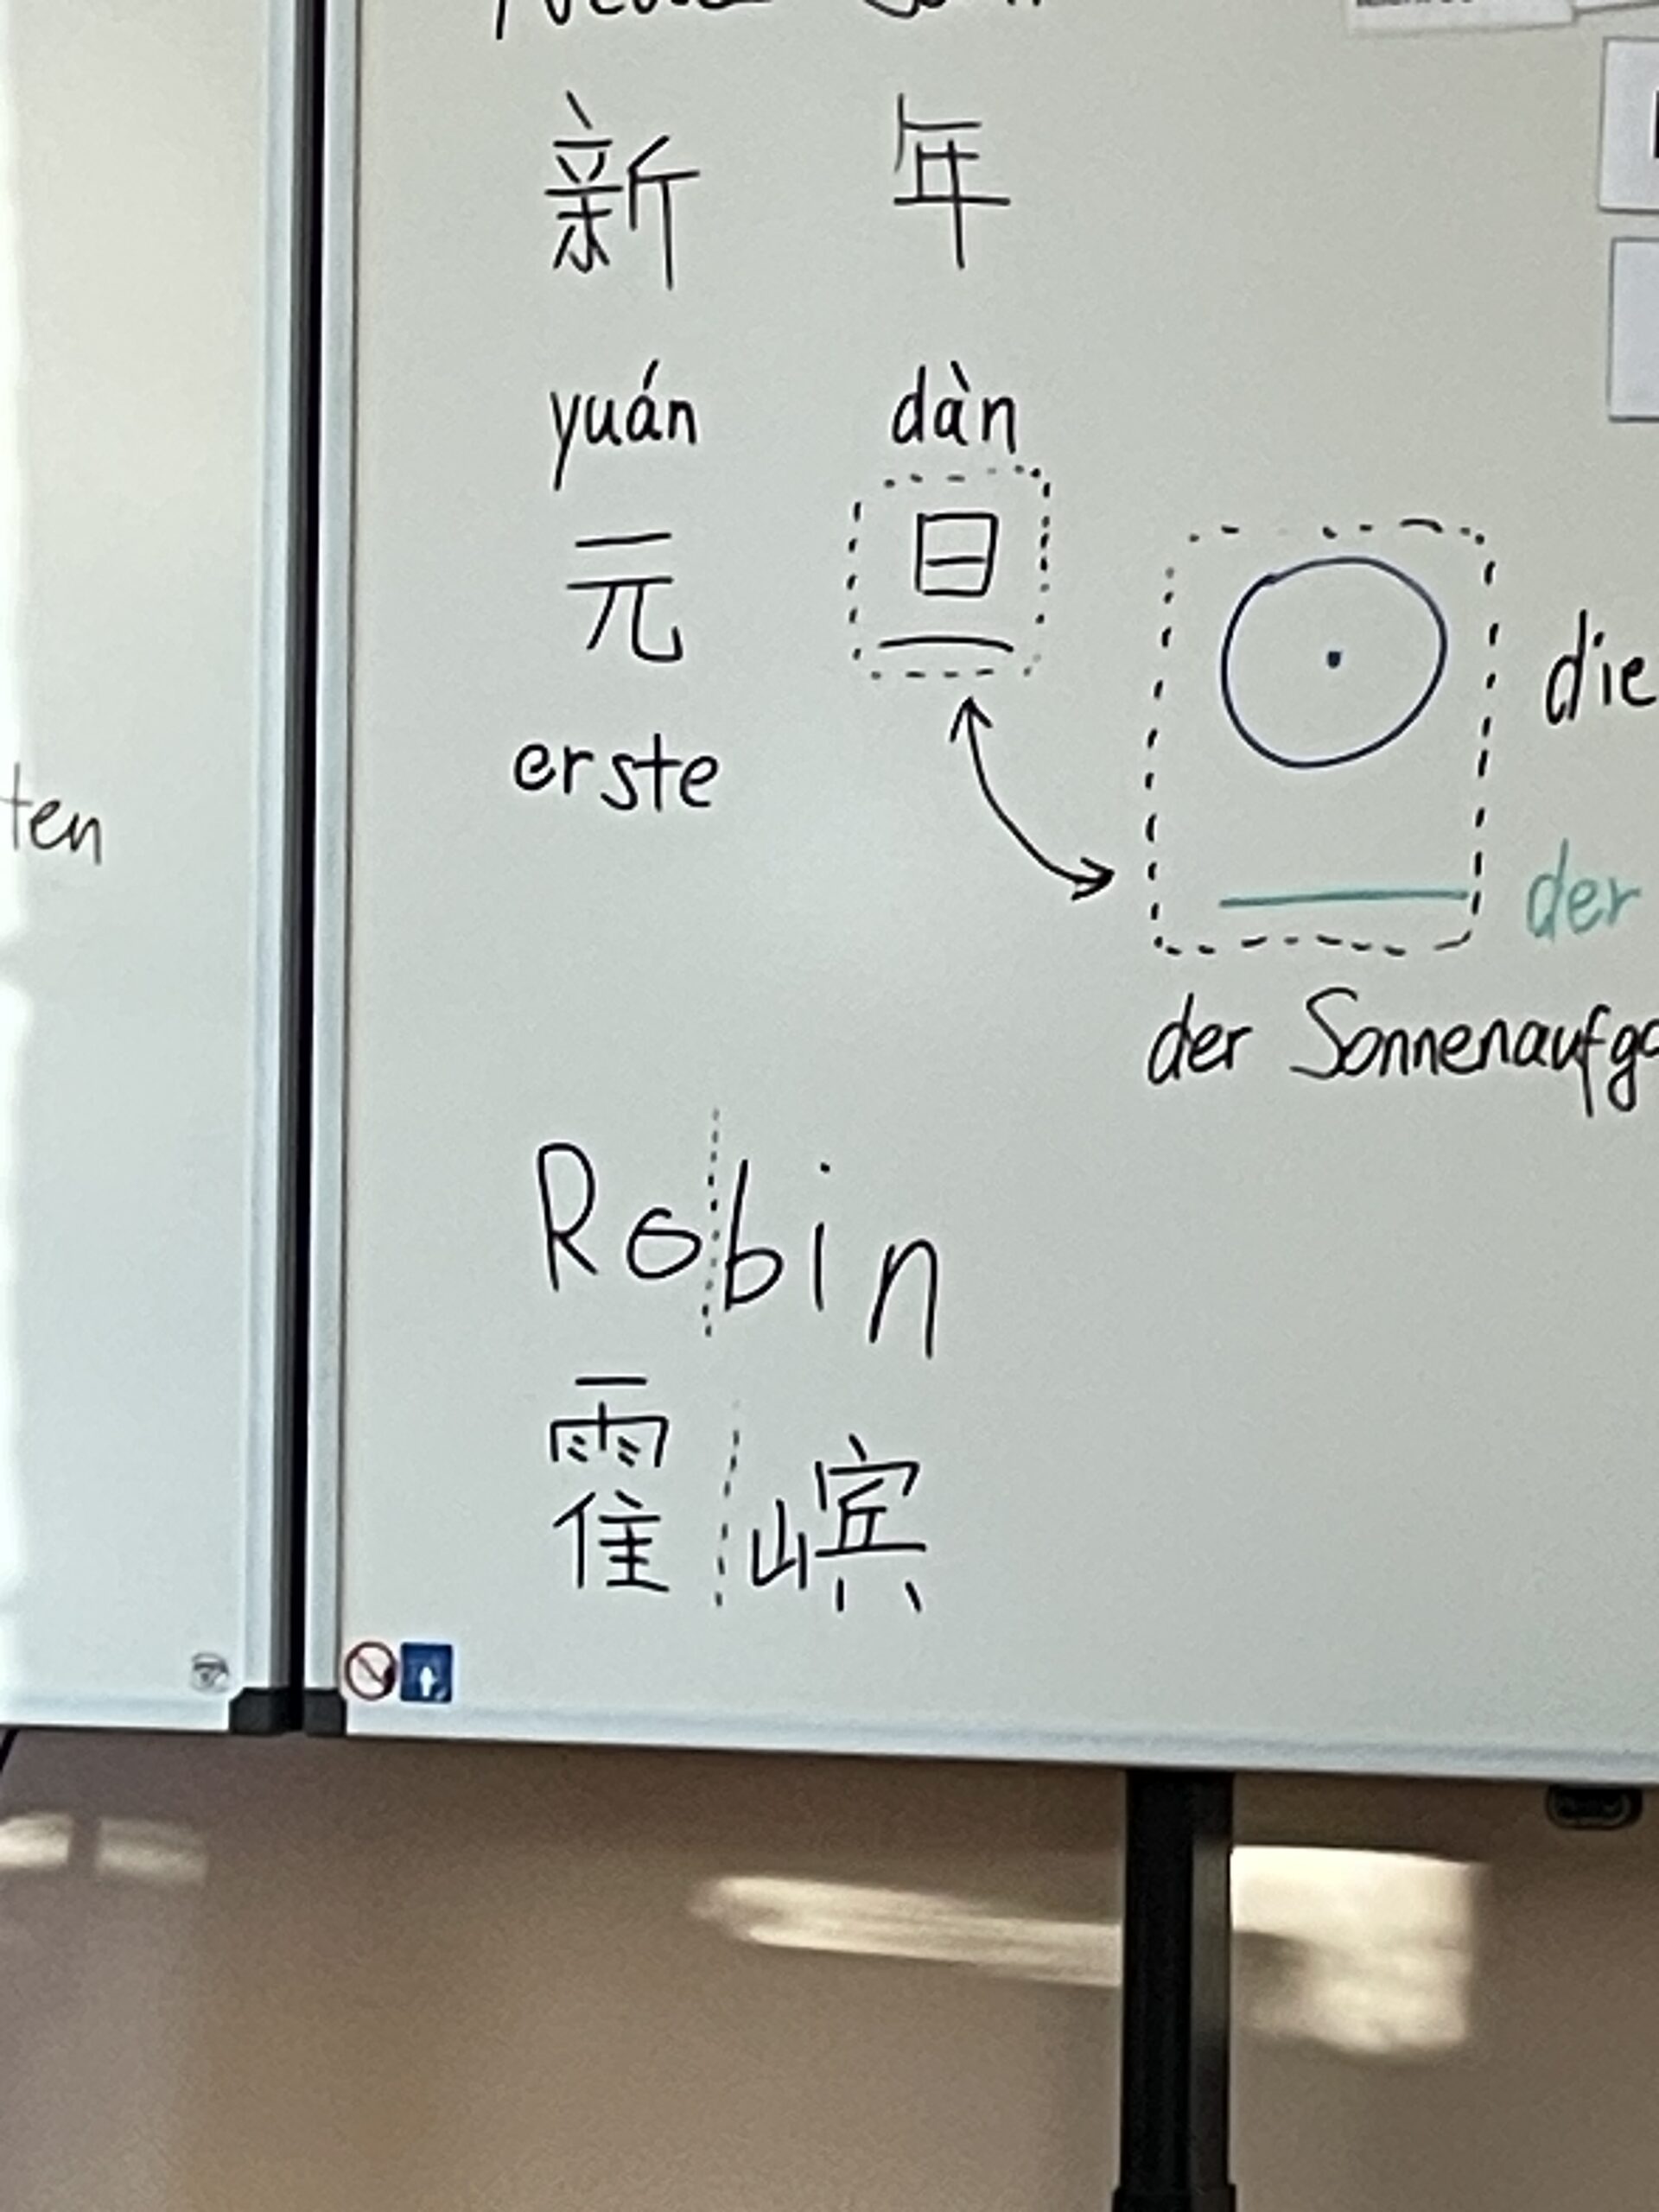 新 年
yuán dàn
元 旦
erste
die
ten
der
der Sonnenaufga
Robin
霍 嫔